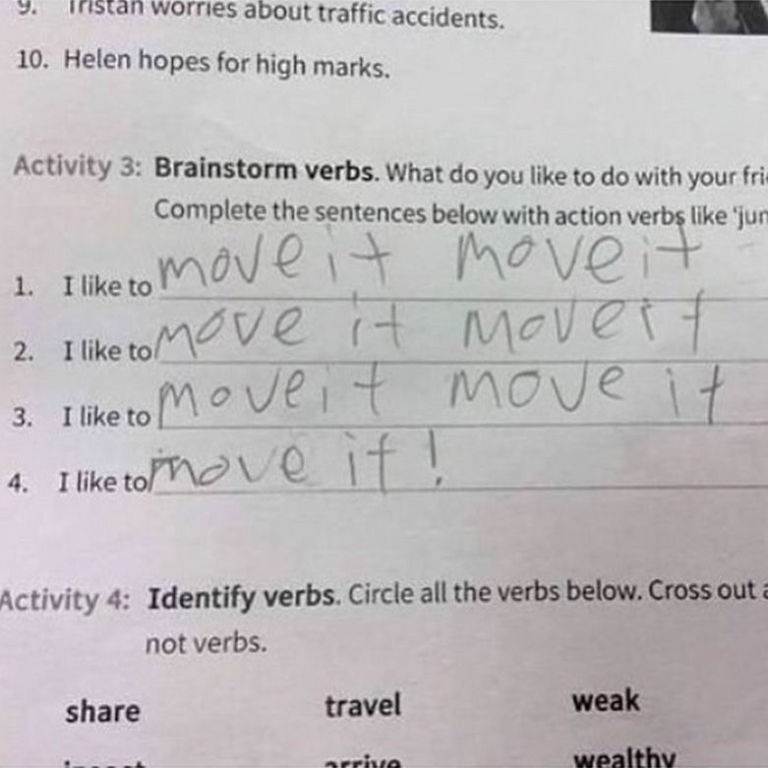 9. Tristan worries about traffic accidents.
10. Helen hopes for high marks.
Activity 3: Brainstorm verbs. What do you like to do with your
Complete the sentences below with action verbs like
1. I like to move it move it
2. I like to move it move it
3. I like to move it move it
4. I like to move it!
Activity 4: Identify verbs. Circle all the verbs below. Cross out
not verbs.
share travel weak
arrive wealthy